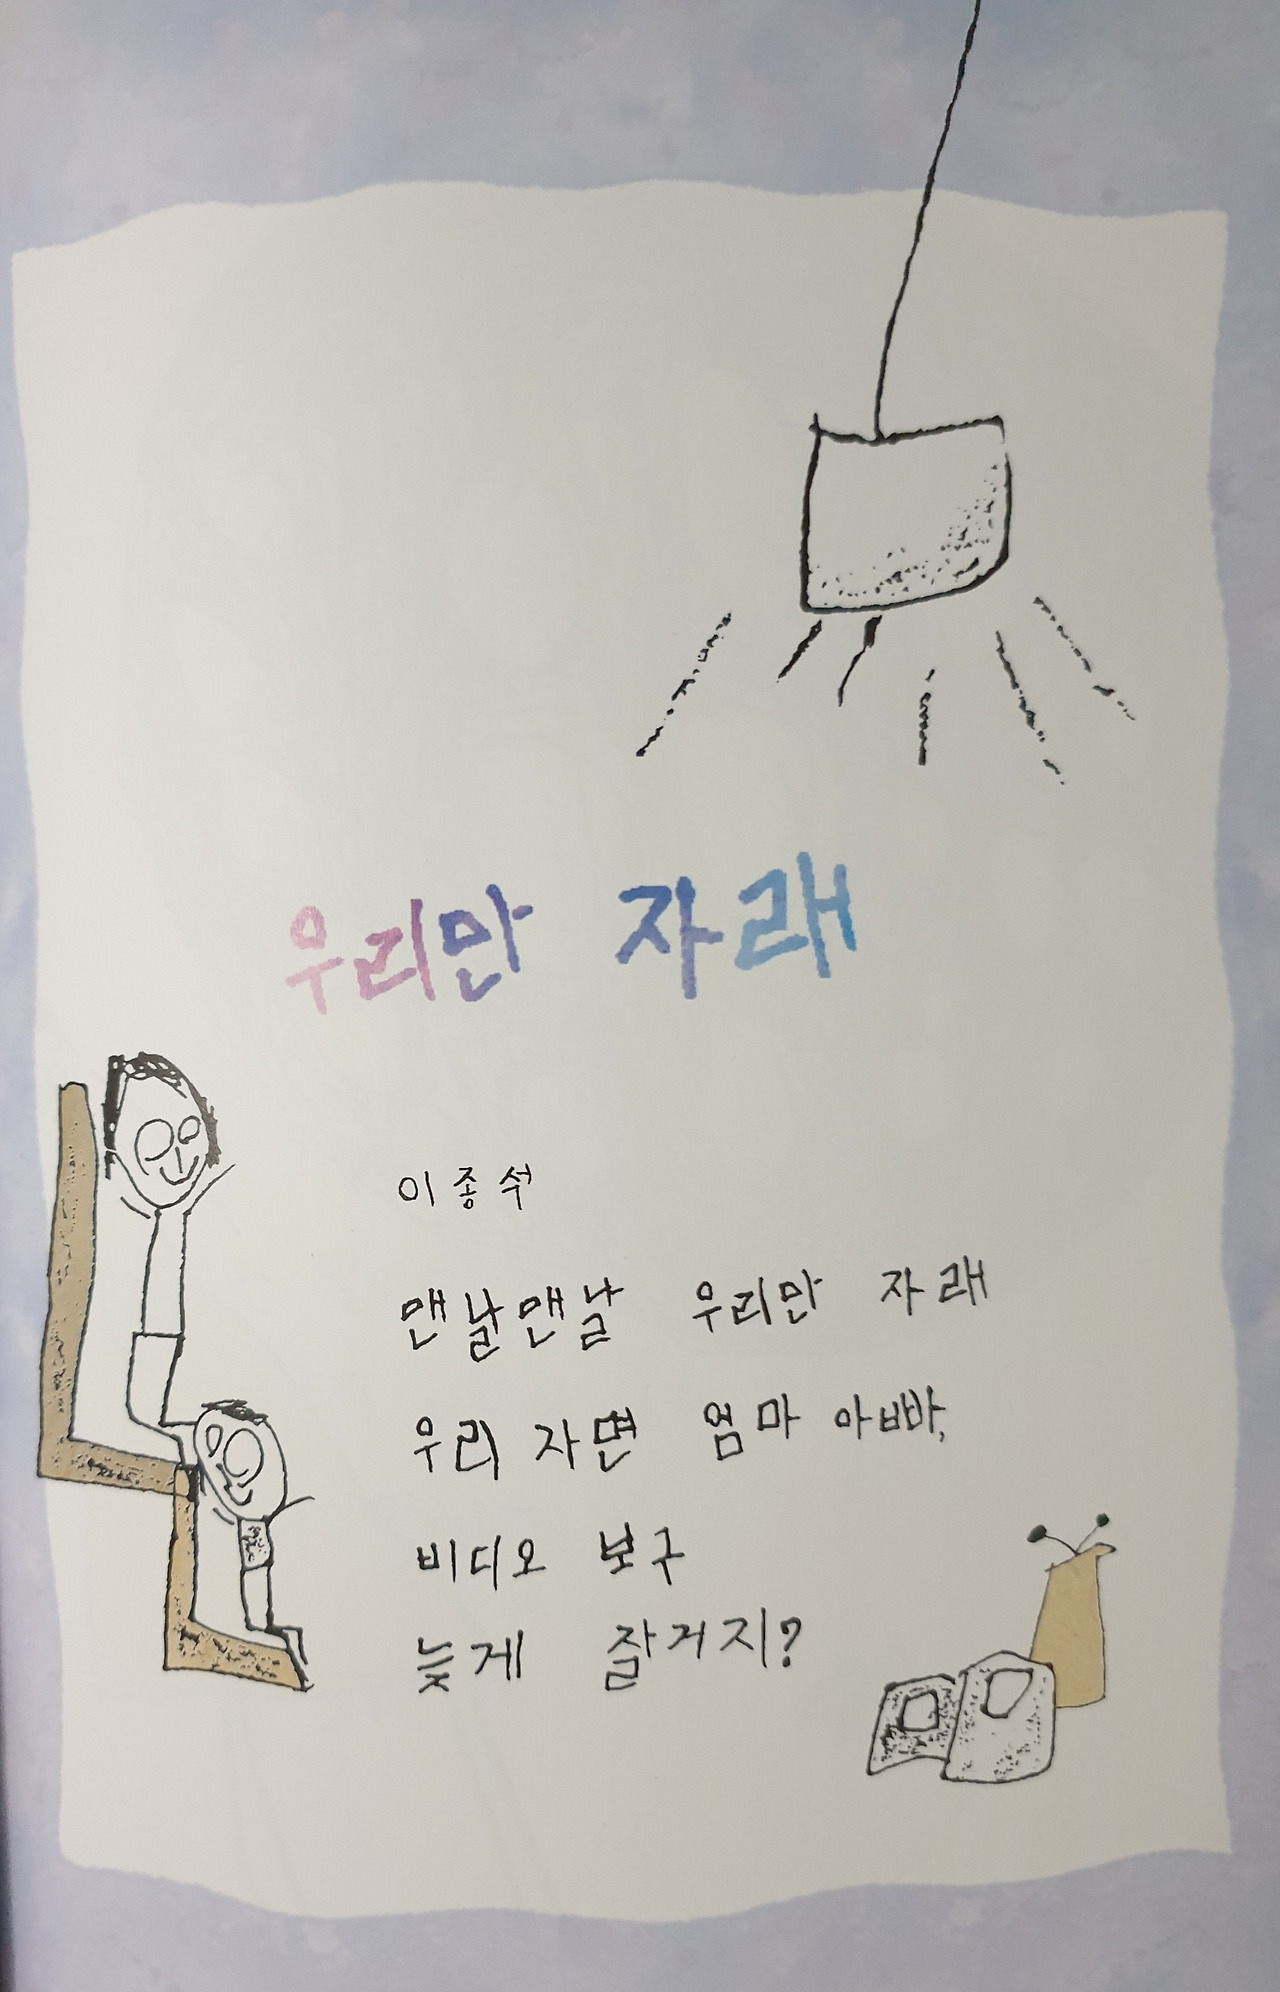 우리만 자래
이종석
맨날맨날 우리만 자래
우리 자면 엄마 아빠,
비디오 보구
늦게 잘거지?